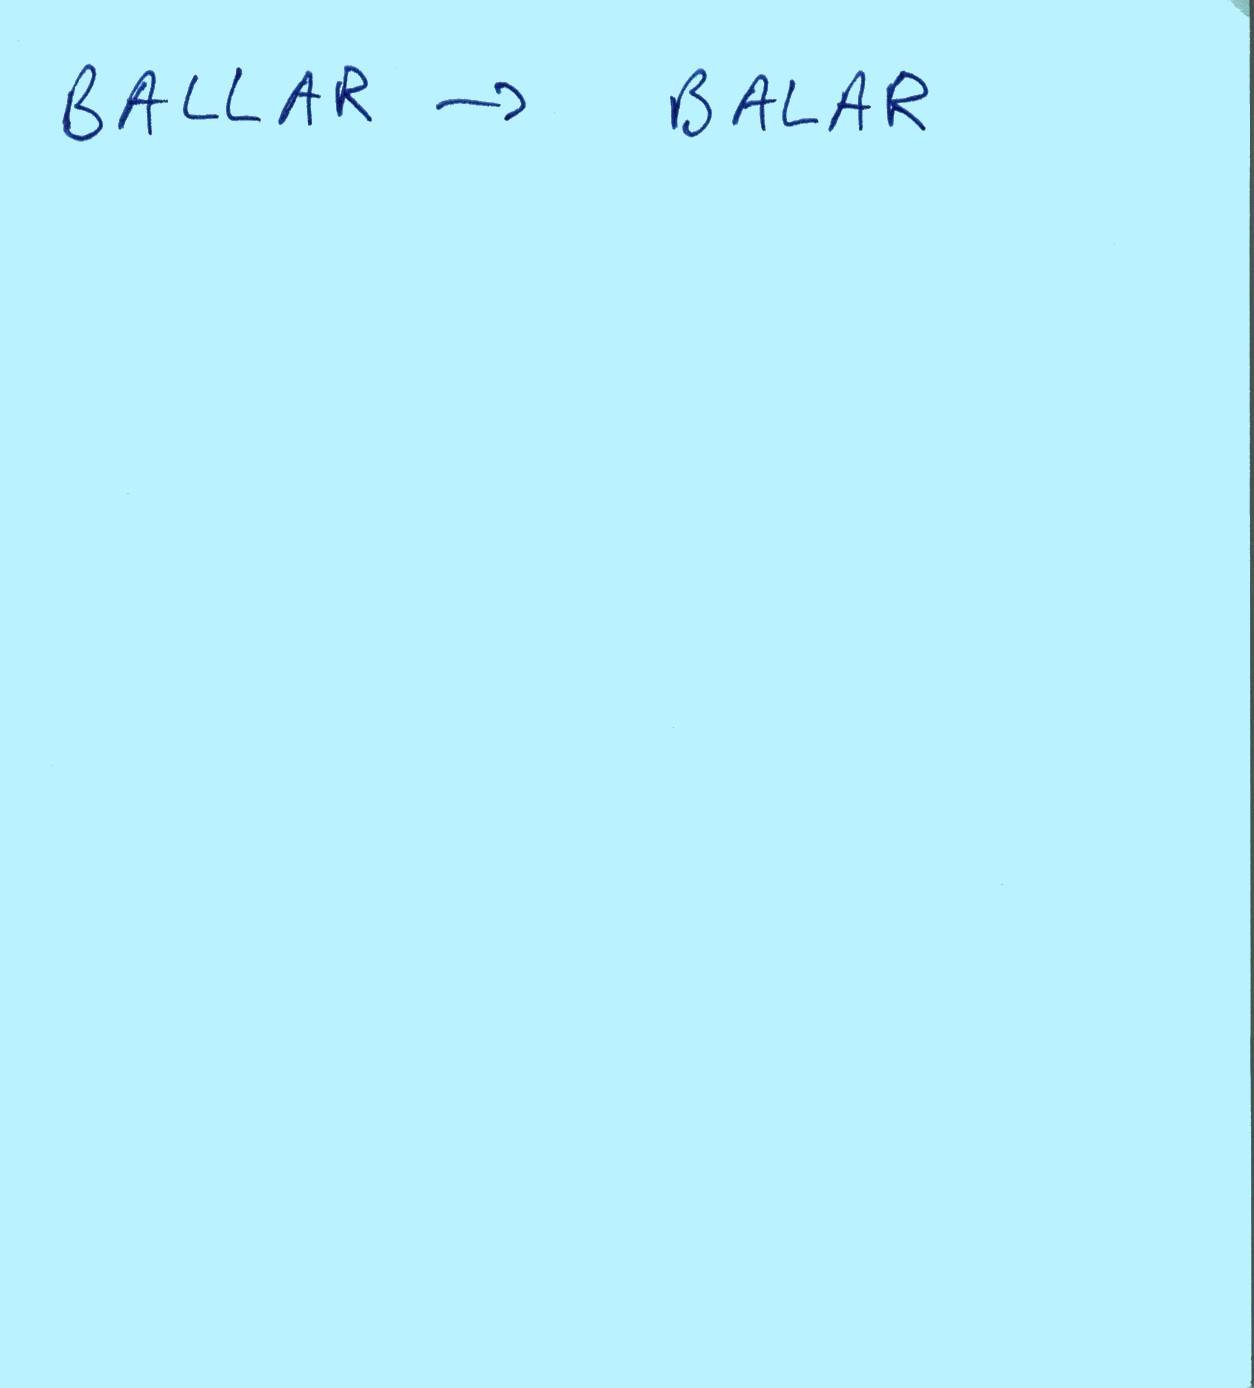 BALLAR → BALAR